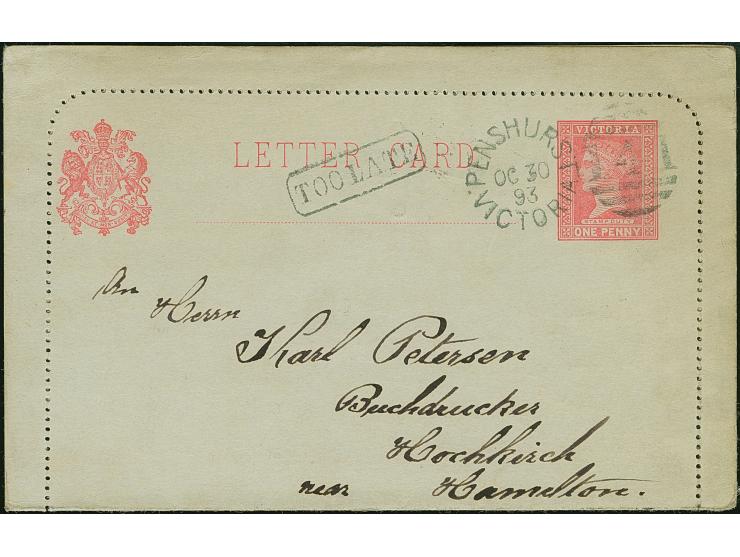 LETTER CARD
TOO LATE
PENSHURST
OC 30
93
VICTORIA
VICTORIA
STAMP DUTY
ONE PENNY
An
Herrn
Karl Petersen
Buchdrucker
Hochkirch
near Hamelton.